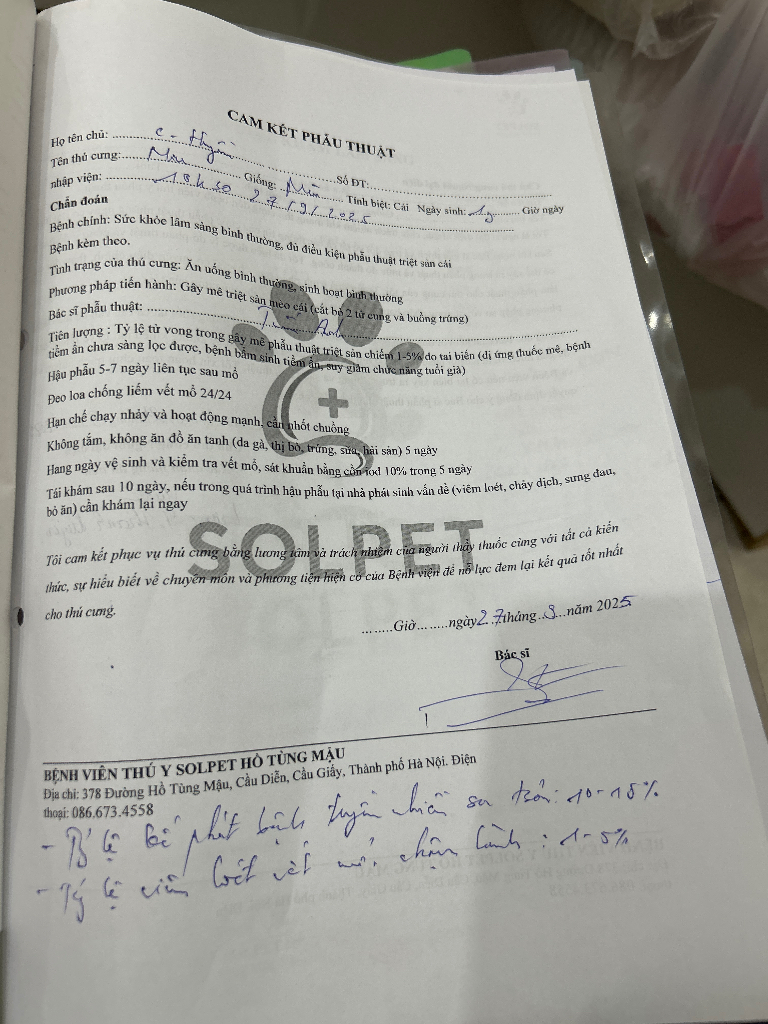 CAM KẾT PHẪU THUẬT
Họ tên chủ: C. Huyền Số ĐT:
Tên thú cưng: Mou Giống: Mèo Tính biệt: Cái Ngày sinh: 1y Giờ ngày
nhập viện: 18h50 27/9/2025
Chẩn đoán
Bệnh chính: Sức khỏe lâm sàng bình thường, đủ điều kiện phẫu thuật triệt sản cái
Bệnh kèm theo.
Tình trạng của thú cưng: Ăn uống bình thường, sinh hoạt bình thường
Phương pháp tiến hành: Gây mê triệt sản mèo cái (cắt bỏ 2 tử cung và buồng trứng)
Bác sĩ phẫu thuật: Anh
Tiên lượng : Tỷ lệ tử vong trong gây mê phẫu thuật triệt sản chiếm 1-5% do tai biến (dị ứng thuốc mê, bệnh
tiềm ẩn chưa sàng lọc được, bệnh bẩm sinh tiềm ẩn, suy giảm chức năng tuổi già)
Hậu phẫu 5-7 ngày liên tục sau mổ
Đeo loa chống liếm vết mổ 24/24
Hạn chế chạy nhảy và hoạt động mạnh, cần nhốt chuồng
Không tắm, không ăn đồ ăn tanh (da gà, thị bò, trứng, sữa, hải sản) 5 ngày
Hang ngày vệ sinh và kiểm tra vết mổ, sát khuẩn bằng cồn iod 10% trong 5 ngày
Tái khám sau 10 ngày, nếu trong quá trình hậu phẫu tại nhà phát sinh vấn đề (viêm loét, chảy dịch, sưng đau,
bỏ ăn) cần khám lại ngay
SOLPET
Tôi cam kết phục vụ thú cưng bằng lương tâm và trách nhiệm của người thầy thuốc cùng với tất cả kiến
thức, sự hiểu biết về chuyên môn và phương tiện hiện có của Bệnh viện để nỗ lực đem lại kết quả tốt nhất
cho thú cưng.
........Giờ........ngày 27 tháng 9 năm 2025
Bác sĩ
BỆNH VIỆN THÚ Y SOLPET HỒ TÙNG MẬU
Địa chỉ: 378 Đường Hồ Tùng Mậu, Cầu Diễn, Cầu Giấy, Thành phố Hà Nội. Điện
thoại: 086.673.4558
- Tỷ lệ kế phát bệnh truyền nhiễm sau triệt sản: 10-15%
- Tỷ lệ viêm loét vết mổ, chậm lành: 1-5%